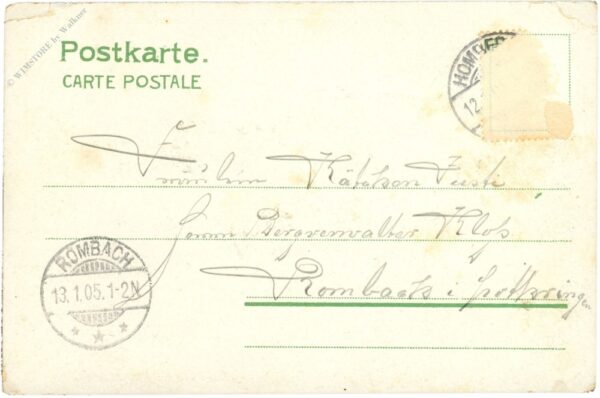 © WIMSTORE by Walkner
Postkarte.
CARTE POSTALE
HOMBE
12.
Fräulein Käthchen Justi
Herrn Bergverwalter Kloß
Rombach i Lothringen
ROMBACH
13.1.05.1-2N